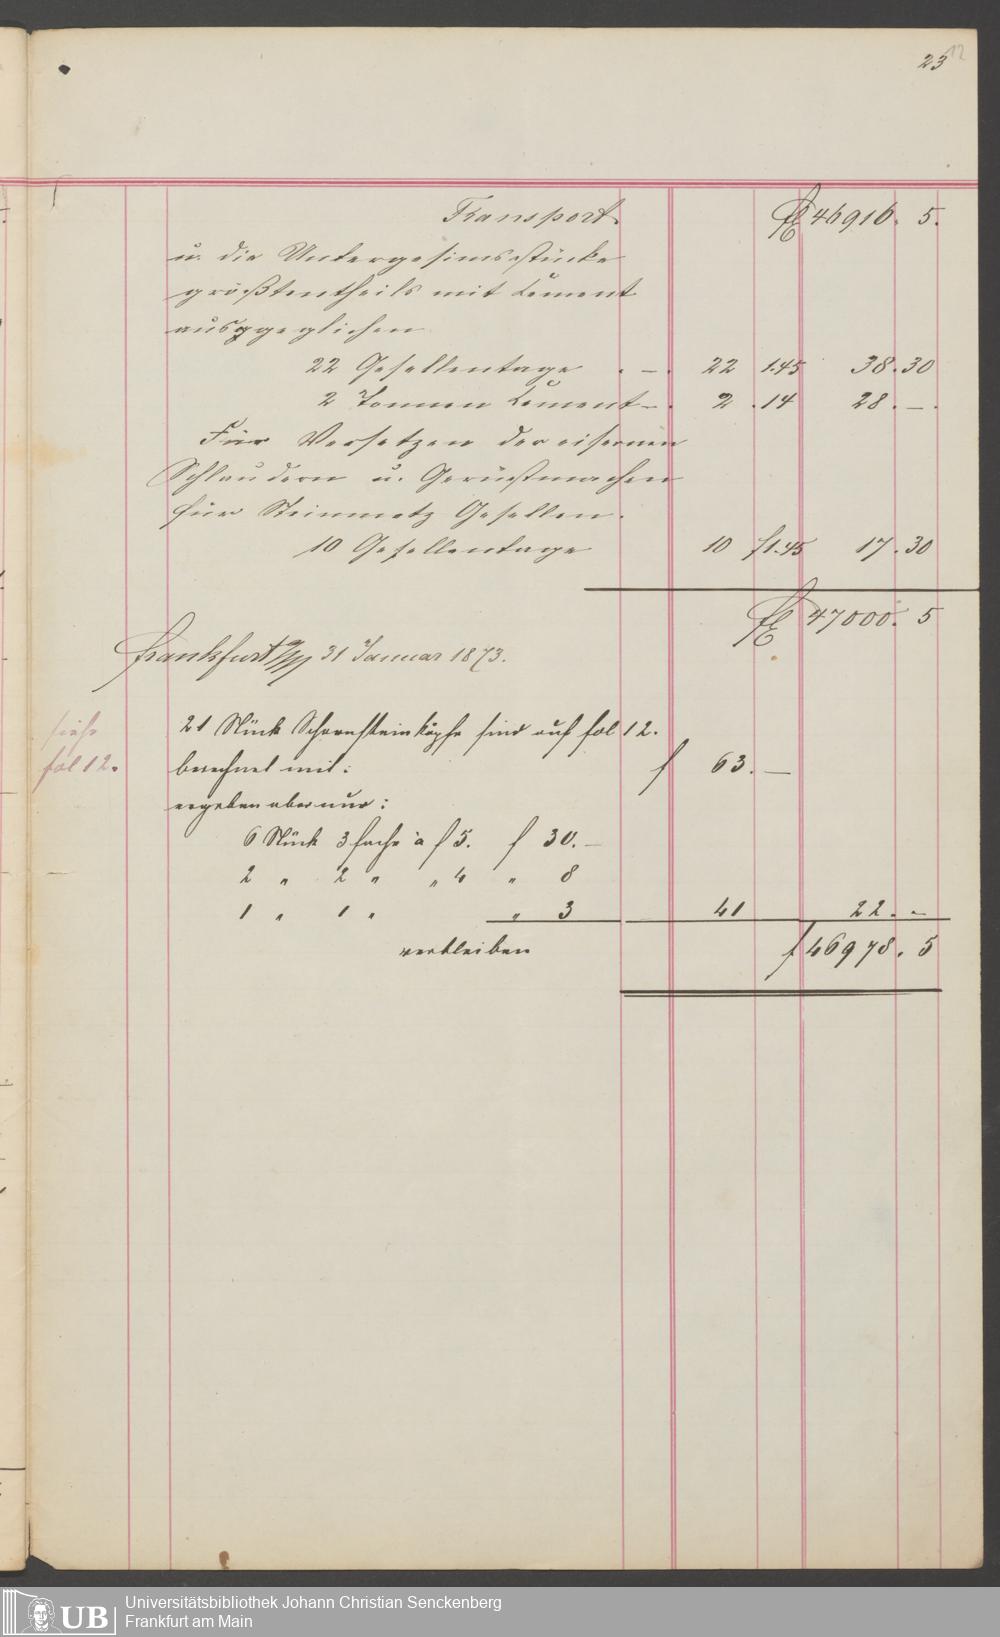 23 12
Transport. fl 46916. 5.
u. die Untergesimsstücke
größtentheils mit Cement
ausgeglichen
22 Gesellentage . – . 22 1.45 38.30
2 Tonnen Cement – . 2 . 14 28. – .
Für Versetzen der eisernen
Schlaudern u. Gerüstmachen
für Steinmetz Gesellen.
10 Gesellentage 10 f 1.45 17.30
fl 47000. 5
Frankfurt a/M 31 Januar 1873.
siehe
fol 12.
21 Stück Schornsteinköpfe sind auf fol 12.
berechnet mit: f 63. –
ergeben aber nur:
6 Stück 3 fache à f 5. f 30. –
2 " 2 " " 4 " 8
1 " 1 " " 3 41 22. –
verbleiben f 46978. 5
UB Universitätsbibliothek Johann Christian Senckenberg
Frankfurt am Main